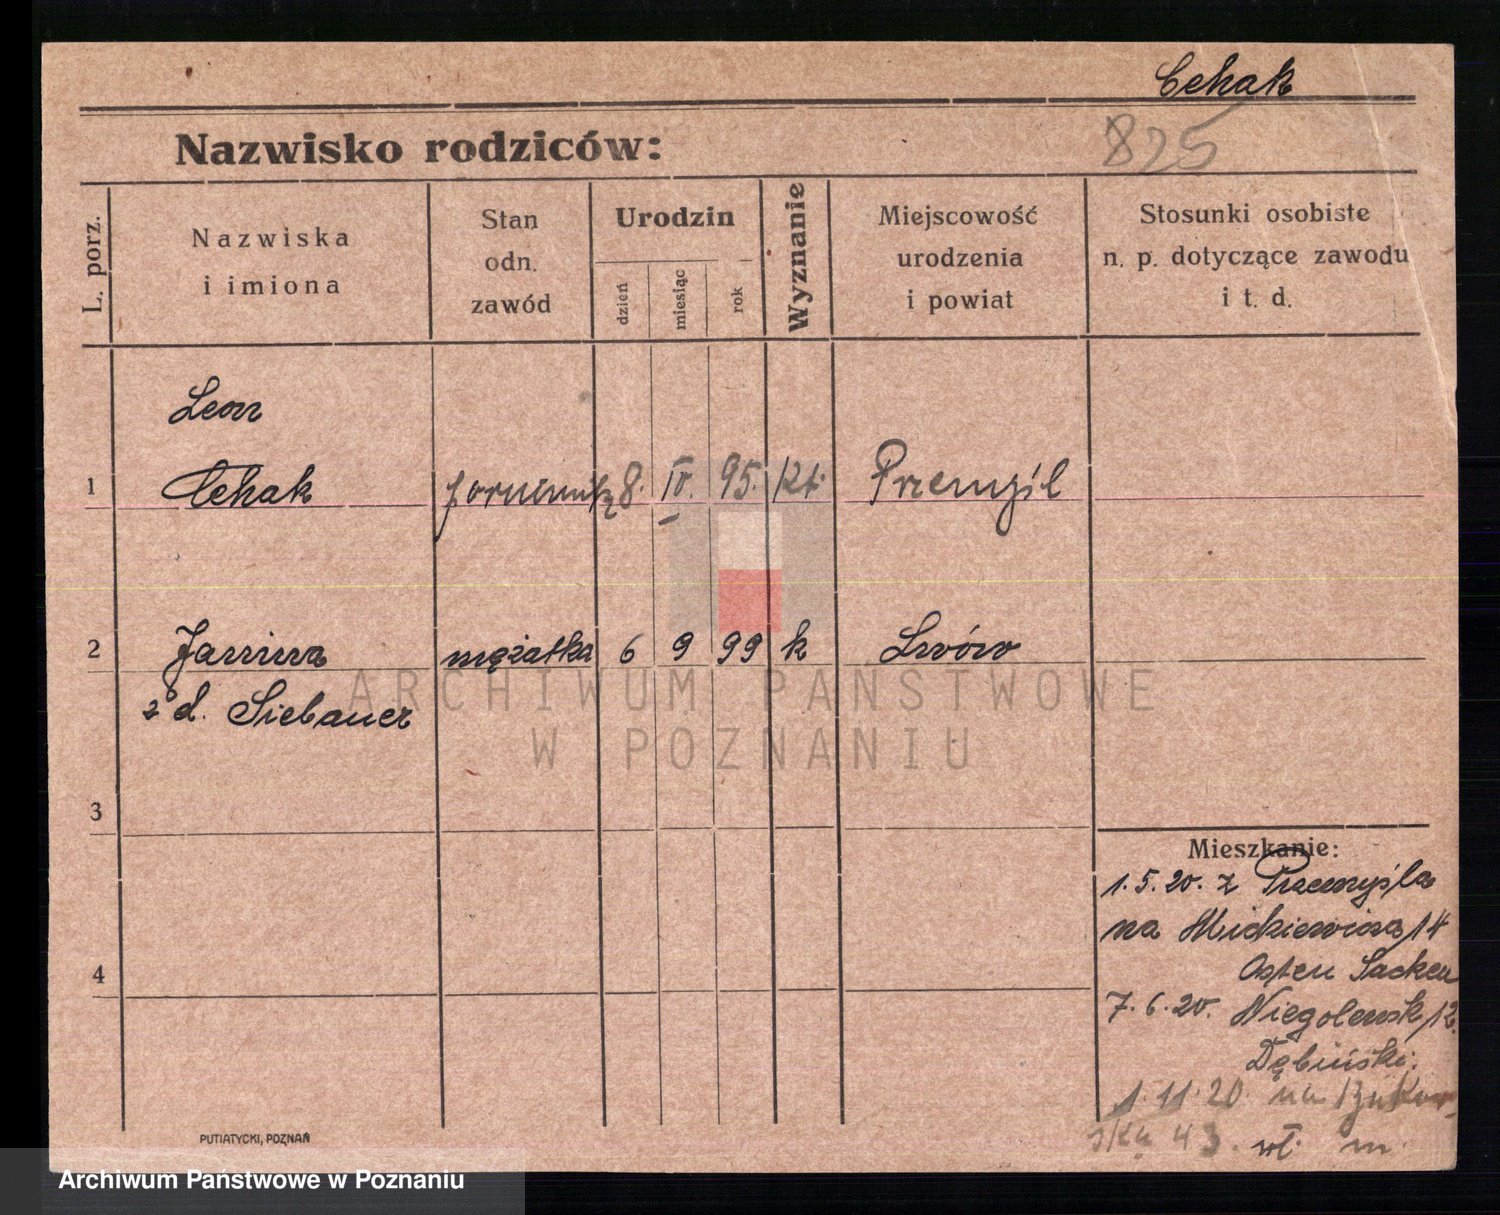 Cehak
825
Nazwisko rodziców:
L. porz.
Nazwiska
i imiona
Stan
odn.
zawód
Urodzin
dzień
miesiąc
rok
Wyznanie
Miejscowość
urodzenia
i powiat
Stosunki osobiste
n. p. dotyczące zawodu
i t. d.
Leon
1 Cehak 8. IV. 95. Kt. Przemyśl
2 Janina mężatka 6 9 99 k Lwów
z d. Siebauer
3
4
Mieszkanie:
1. 5. 20. z Przemyśla
na Mickiewicza 14
Osten Sacken
7. 6. 20. Niegolewsk 12.
Dębiński.
1. 11. 20. na Bukow
ską 43. wł. m.
PUTIATYCKI, POZNAŃ
ARCHIWUM PAŃSTWOWE
W POZNANIU
Archiwum Państwowe w Poznaniu